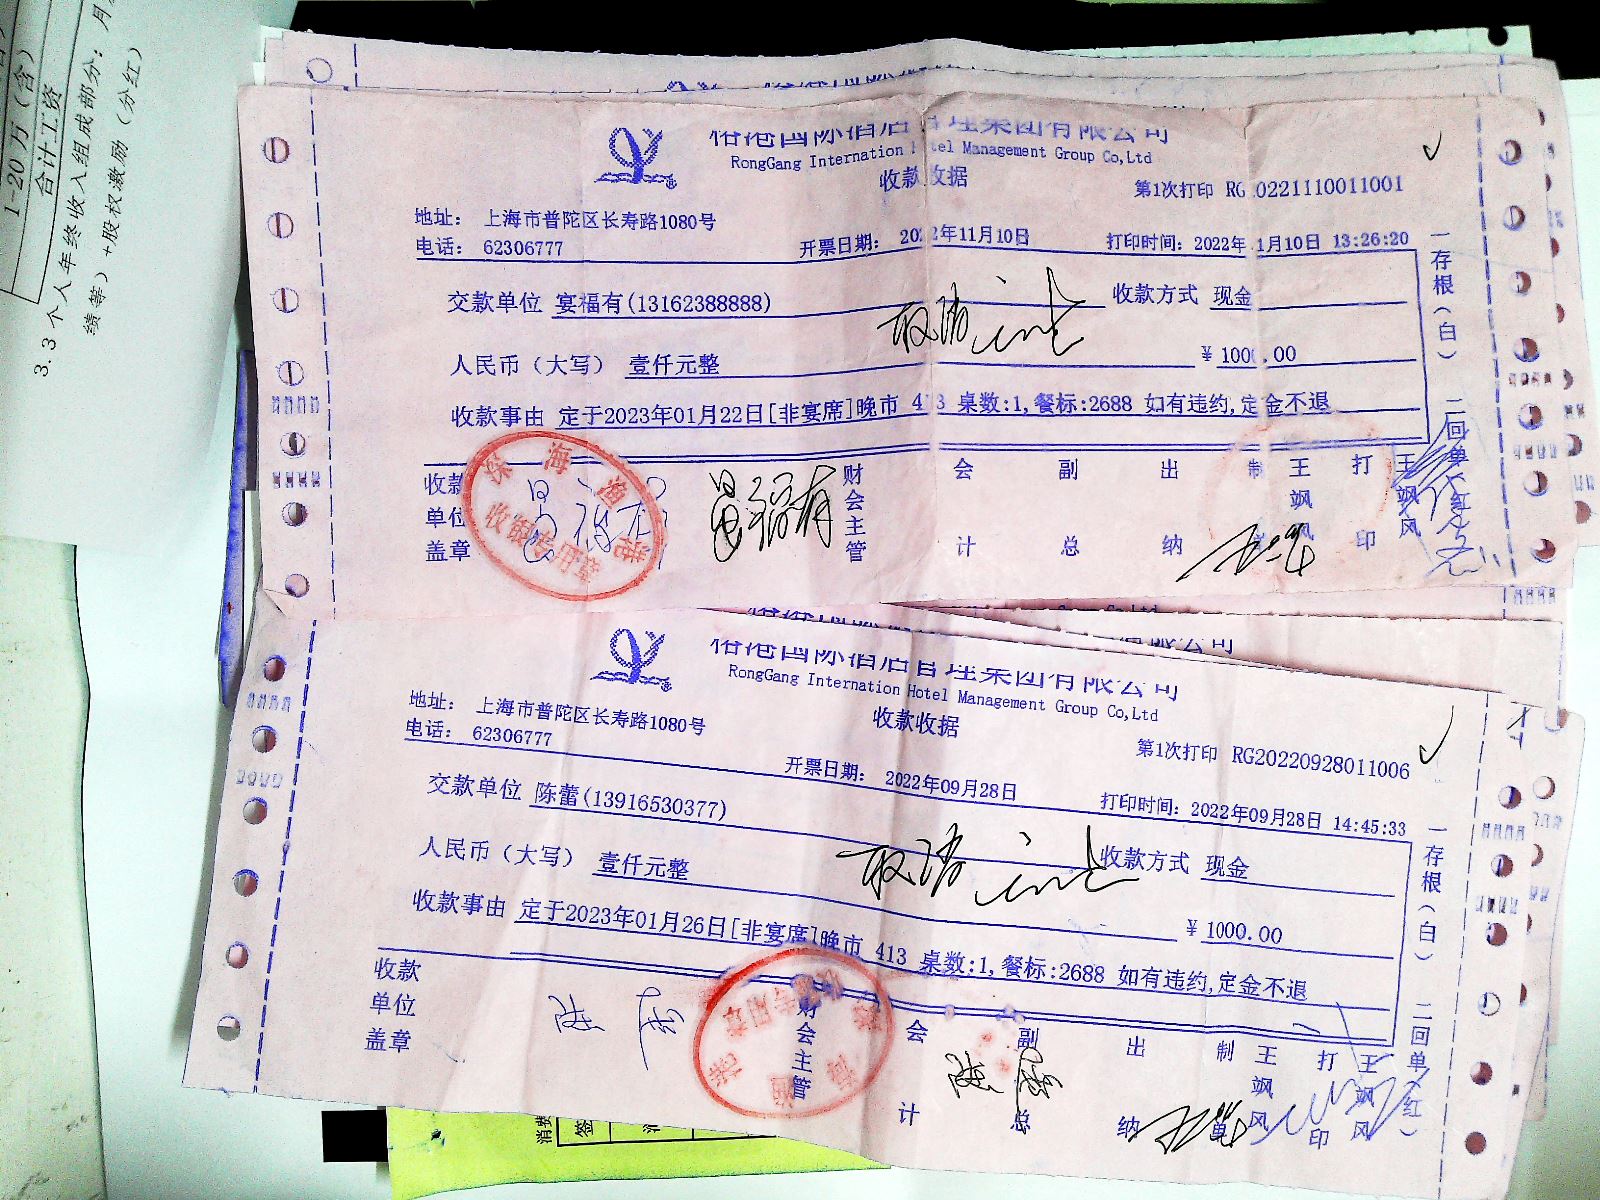 1-20万(含)
合计工资
3.3个人年终收入组成部分：月
绩等）+股权激励（分红）
榕港国际酒店管理集团有限公司
RongGang Internation Hotel Management Group Co,Ltd
收款收据
第1次打印 RG20221110011001
地址： 上海市普陀区长寿路1080号
电话： 62306777
开票日期： 2022年11月10日
打印时间：2022年11月10日 13:26:20
交款单位 宴福有(13162388888)
收款方式 现金
人民币（大写） 壹仟元整
￥1000.00
收款事由 定于2023年01月22日[非宴席]晚市 413 桌数:1,餐标:2688 如有违约,定金不退
一存根（白） 二回单（红）
收款单位盖章
财会主管
会计
副总
出纳
制单 王飒风
打印 王飒风
深海渔港
收银专用章
榕港国际酒店管理集团有限公司
RongGang Internation Hotel Management Group Co,Ltd
收款收据
第1次打印 RG20220928011006
地址： 上海市普陀区长寿路1080号
电话： 62306777
开票日期： 2022年09月28日
打印时间：2022年09月28日 14:45:33
交款单位 陈蕾(13916530377)
收款方式 现金
人民币（大写） 壹仟元整
￥1000.00
收款事由 定于2023年01月26日[非宴席]晚市 413 桌数:1,餐标:2688 如有违约,定金不退
一存根（白） 二回单（红）
收款单位盖章
财会主管
会计
副总
出纳
制单 王飒风
打印 王飒风
消费
签